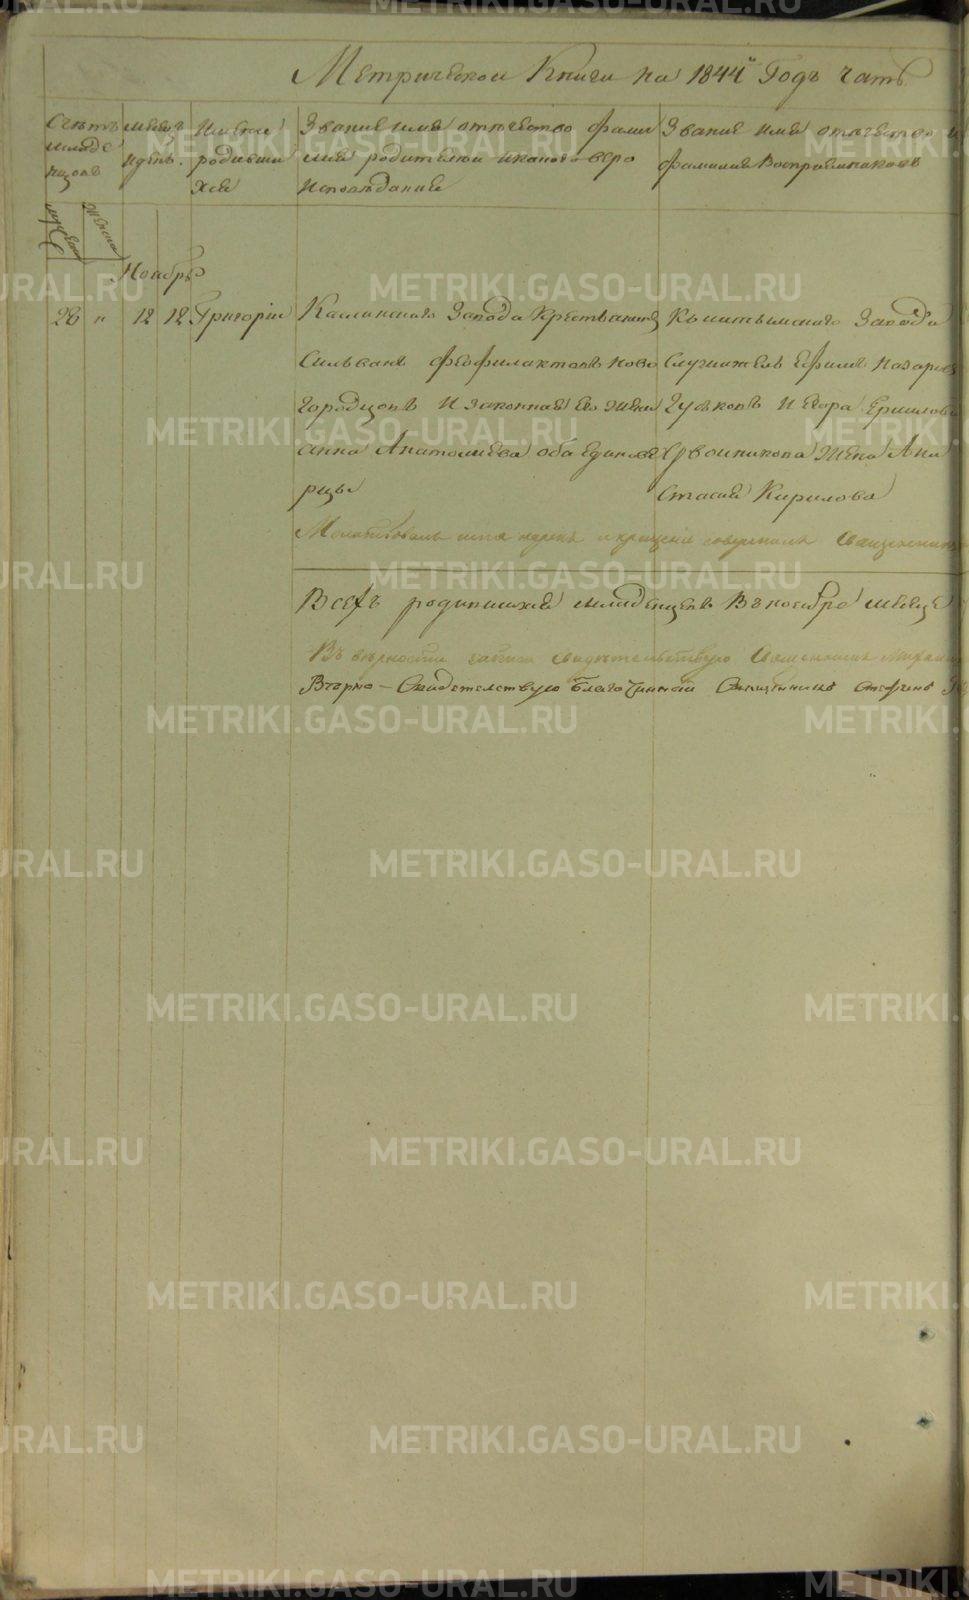 Метрической Книги на 1844й Годъ часть
Счетъ
младе
нцовъ
месецъ
идень.
Имяна
родивши
хся
Звание имя отечество фами
лия родителей икакого веро
Исповедания
Звание Имя отечество и
фамилия Восприемниковъ
мужеска
женска
Ноябрь
28 " 12 12 Григорий
Каслинскаго Завода Крестьянинъ
Сильванъ Феофилактовъ Ново
городцовъ И законная Его жена
анна Анатолиева оба единове
рцы
Кыштымскаго Завода
Служитель Ефимъ Назаровъ
Гуськовъ И Егора Ершлова
жена Ана
стасия Кирилова
Молитвовалъ имя нарекъ икрещение совершилъ Священникъ
Всехъ родившихся младенцевъ Въ ноябре месеце
Въ верности записи свидетельствую Священникъ Михаилъ
Верно – Свидетелствую Благочинный Священникъ Стефанъ
METRIKI.GASO-URAL.RU